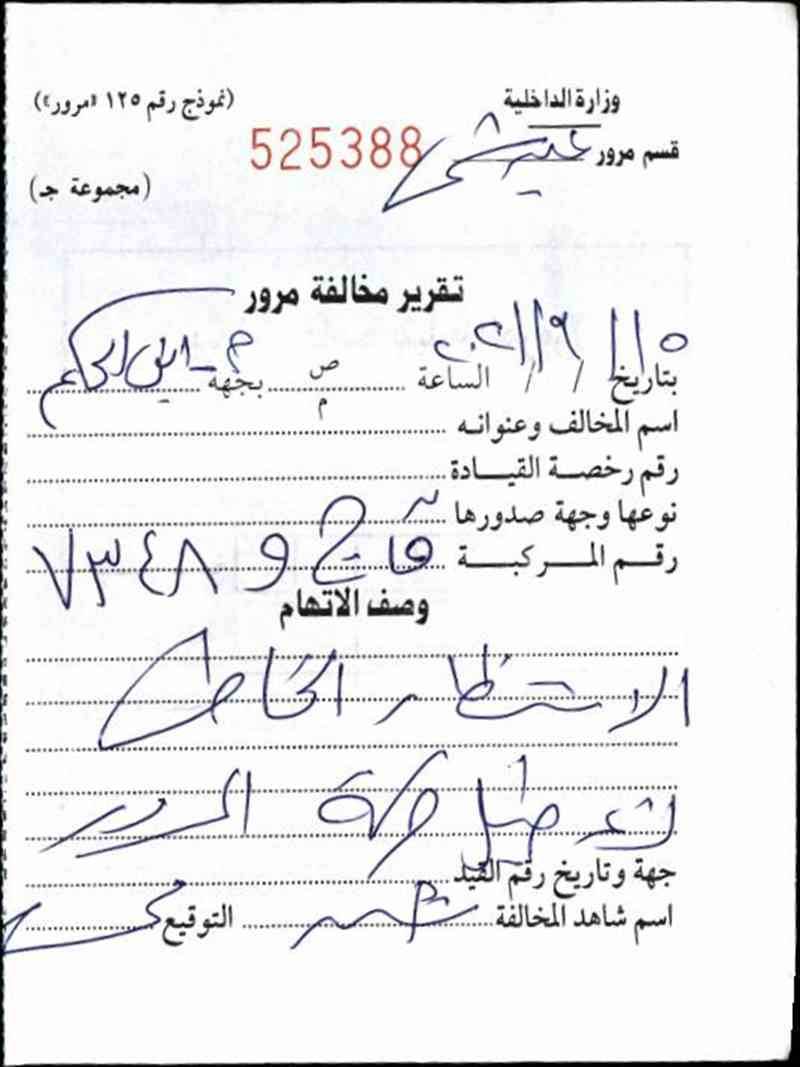 وزارة الداخلية
(نموذج رقم ١٢٥ «مرور»)
قسم مرور عين شمس
525388
(مجموعة جـ)
تقرير مخالفة مرور
بتاريخ / / الساعة ص م بجهة
اسم المخالف وعنوانه
رقم رخصة القيادة
نوعها وجهة صدورها
رقم المركبة ٧٣٤٨
وصف الاتهام
الانتظار الخاطئ
تعطيل حركة المرور
جهة وتاريخ رقم القيد
اسم شاهد المخالفة التوقيع